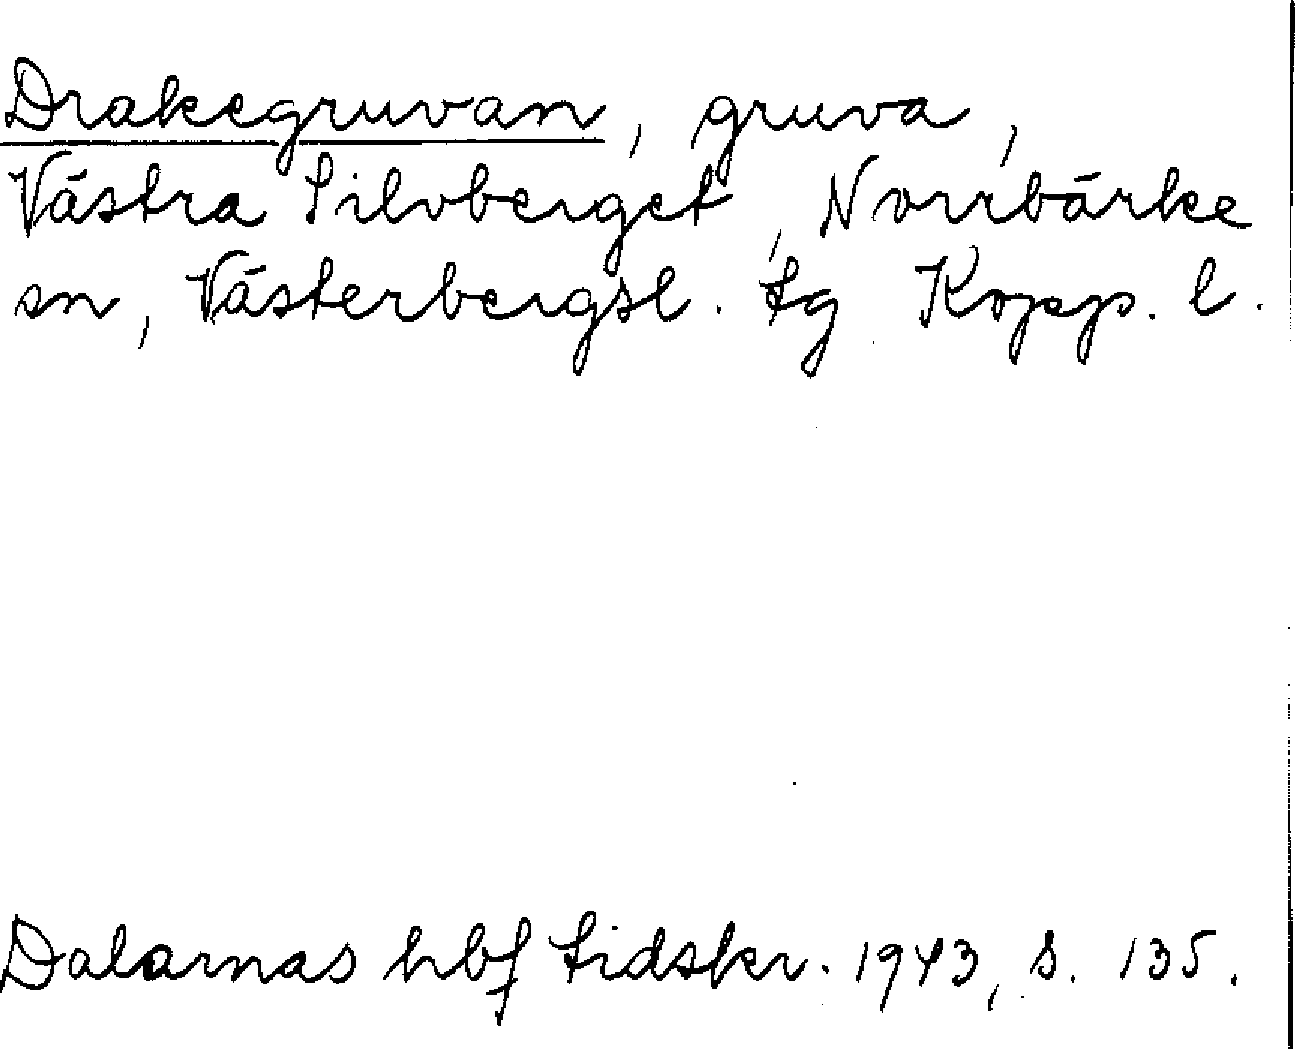 Drakegruvan, gruva,
Västra Silvberget, Norrbärke
sn, Västerbergsl. tg Kopp. l.
Dalarnas hbf tidskr. 1943, s. 135.